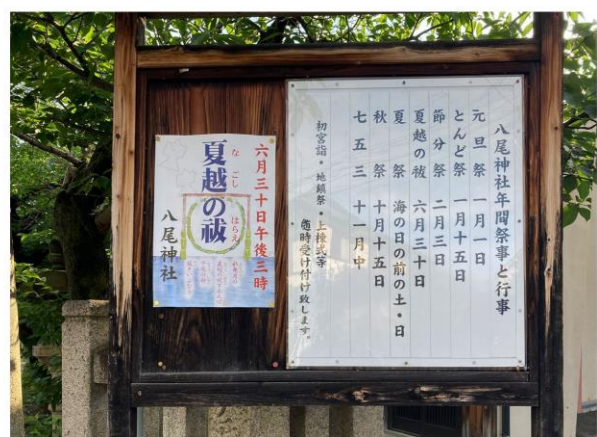 八尾神社年間祭事と行事
元旦祭 一月一日
とんど祭 一月十五日
節分祭 二月三日
夏越の祓 六月三十日
夏祭 海の日の前の土・日
秋祭 十月十五日
七五三 十一月中
初宮詣・地鎮祭・上棟式等
随時受け付け致します。
六月三十日午後三時
夏越の祓
なごし はらえ
八尾神社